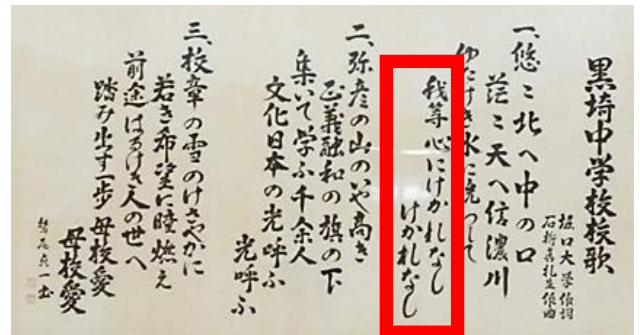 黒埼中学校校歌
堀口大学作詞
石桁真礼生作曲
一、悠々北へ中の口
茫々天へ信濃川
ゆたけき水に
我等心にけがれなし
けがれなし
二、弥彦の山のいや高き
正義融和の旗の下
集いて学ぶ千余人
文化日本の光呼ぶ
光呼ぶ
三、校章の雪のけざやかに
若き希望に瞳燃え
前途はるけき人の世へ
踏み出す一歩母校愛
母校愛